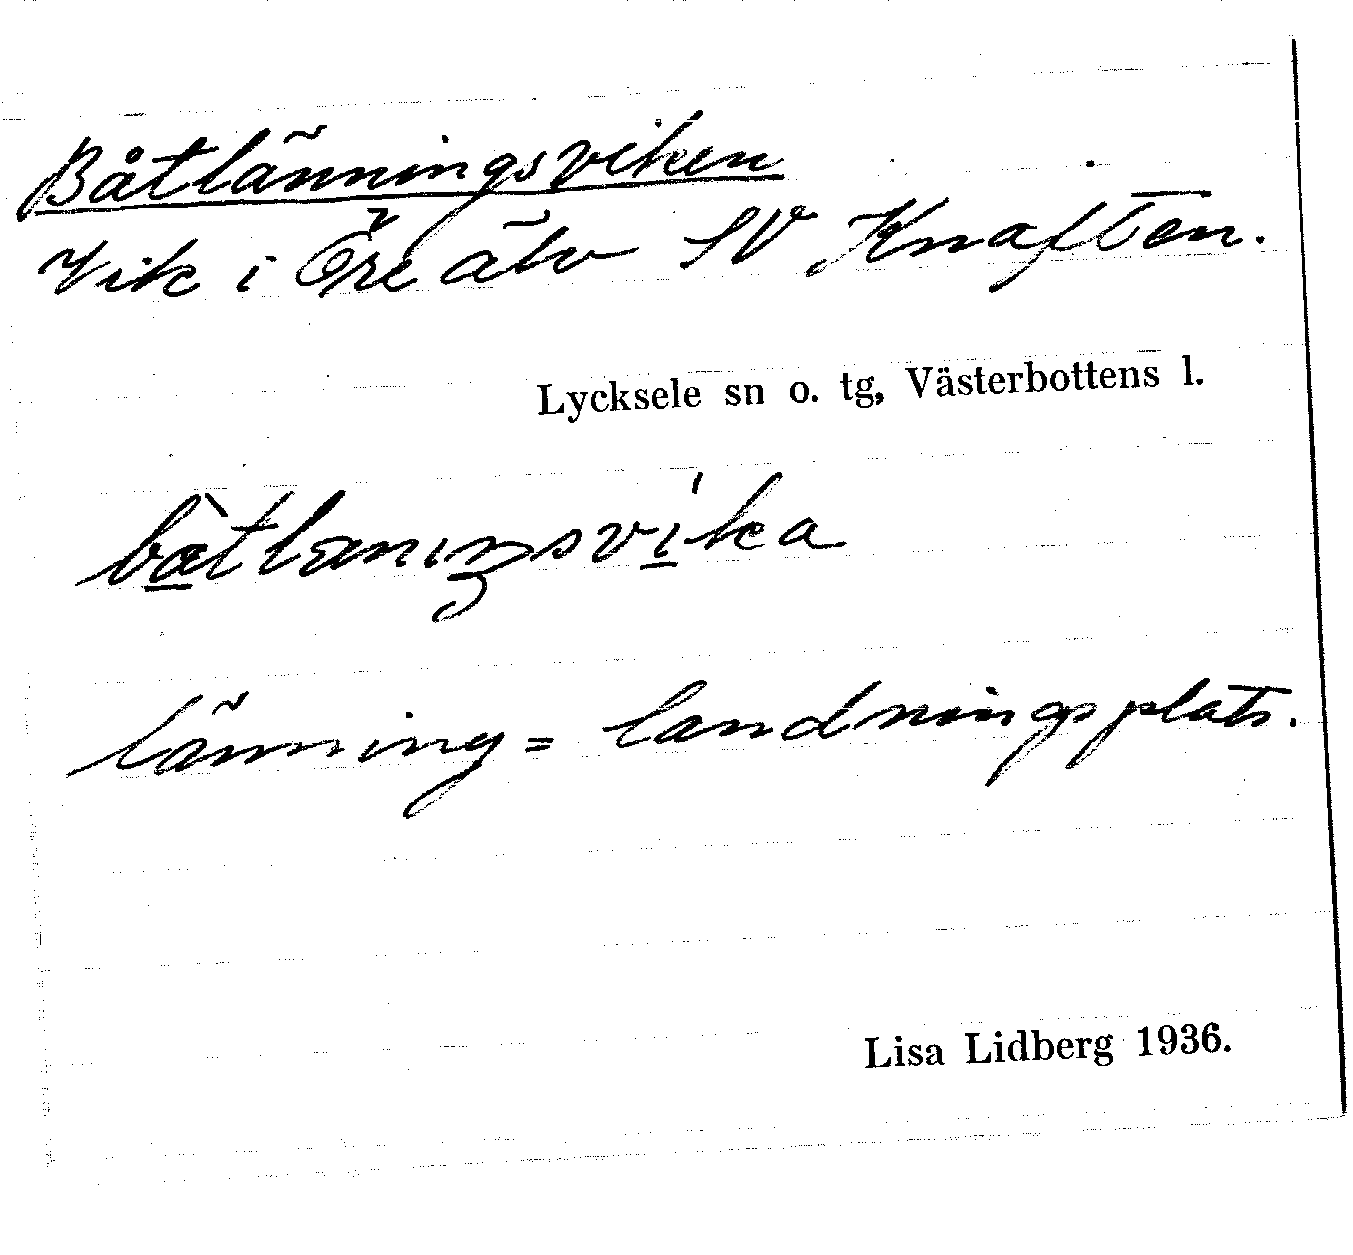 Båtlänningsviken
Vik i Öre älv SV Knaften.
Lycksele sn o. tg, Västerbottens l.
länning = landningsplats.
Lisa Lidberg 1936.